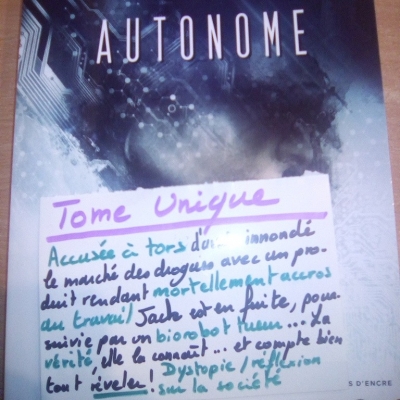 AUTONOME
Tome Unique
Accusée à tors d'avoir innondé
le marché des drogues avec un pro-
duit rendant mortellement accros
au travail Jack est en fuite, pour-
suivie par un biorobot tueur... La
vérité, elle la connaît... et compte bien
tout réveler! Dystopie / réflexion
sur la société
S D'ENCRE